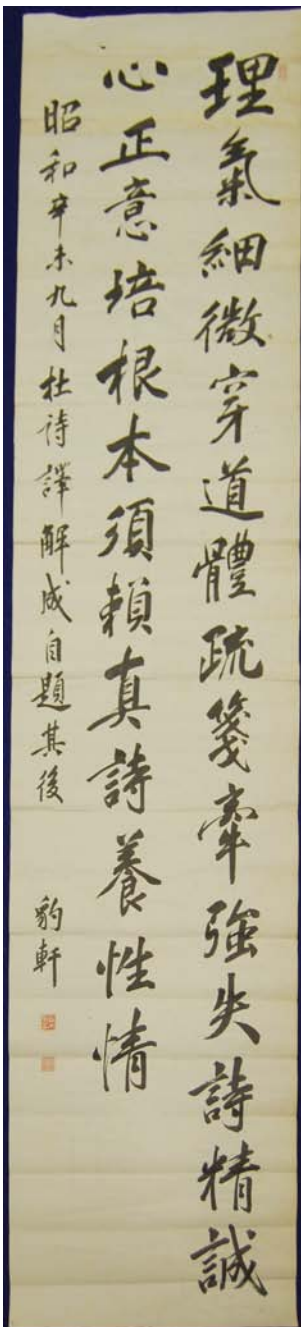 理氣細微穿道體疏箋牽強失詩精誠
心正意培根本須賴真詩養性情
昭和辛未九月杜詩譯解成自題其後
豹軒